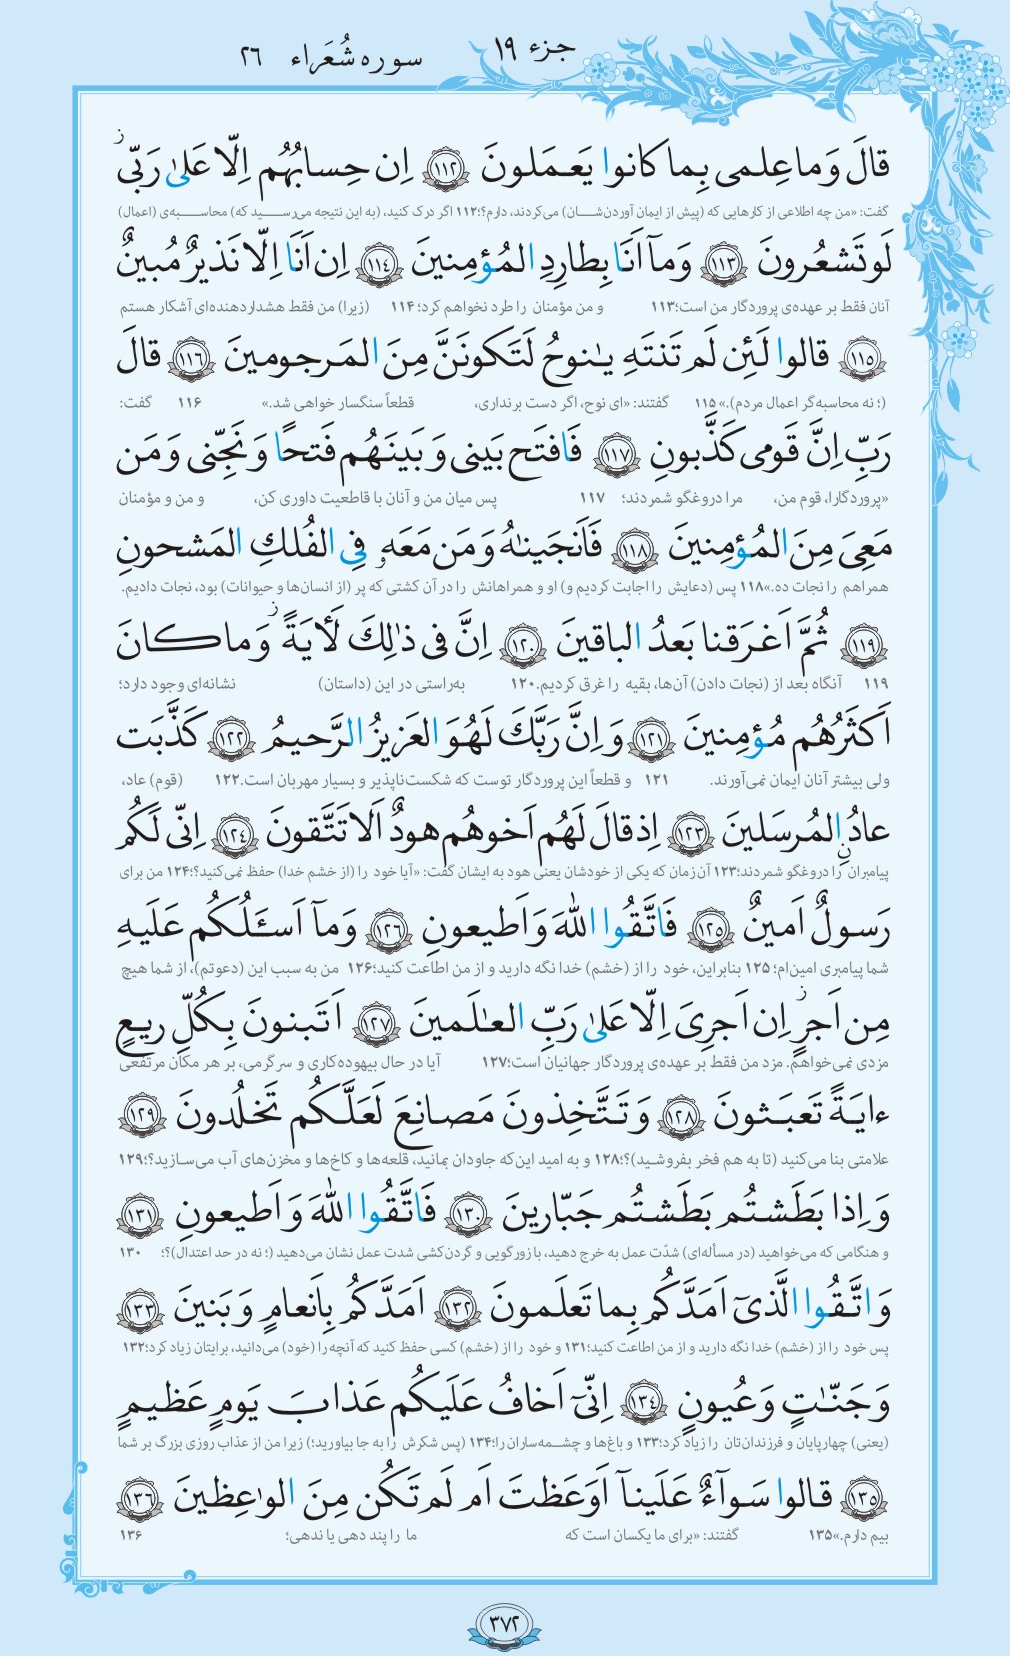 جزء ۱۹
سوره شُعَراء ۲۶
قالَ وَما عِلمی بِما کانوا یَعمَلونَ ﴿١١٢﴾ اِن حِسابُهُم اِلّا عَلیٰ رَبّی ز
گفت: «من چه اطلاعی از کارهایی که (پیش از ایمان آوردن‌شان) می‌کردند، دارم؟؛۱۱۲ اگر درک کنید، (به این نتیجه می‌رسید که) محاسبه‌ی (اعمال)
لَو تَشعُرونَ ﴿١١٣﴾ وَمآ اَنَا بِطارِدِ المُؤمِنینَ ﴿١١٤﴾ اِن اَنَا اِلّا نَذیرٌ مُبینٌ
آنان فقط بر عهده‌ی پروردگار من است؛۱۱۳ و من مؤمنان را طرد نخواهم کرد؛ ۱۱۴ (زیرا) من فقط هشداردهنده‌ای آشکار هستم
﴿١١٥﴾ قالوا لَئِن لَم تَنتَهِ یـٰنوحُ لَتَکونَنَّ مِنَ المَرجومینَ ﴿١١٦﴾ قالَ
(؛ نه محاسبه‌گر اعمال مردم).» ۱۱۵ گفتند: «ای نوح، اگر دست برنداری، قطعاً سنگسار خواهی شد.» ۱۱۶ گفت:
رَبِّ اِنَّ قَومی کَذَّبونِ ﴿١١٧﴾ فَافتَح بَینی وَ بَینَهُم فَتحًا وَ نَجِّنی وَ مَن
«پروردگارا، قوم من، مرا دروغگو شمردند؛ ۱۱۷ پس میان من و آنان با قاطعیت داوری کن، و من و مؤمنان
مَعِیَ مِنَ المُؤمِنینَ ﴿١١٨﴾ فَاَنجَینـٰهُ وَ مَن مَعَهو فِی الفُلکِ المَشحونِ
همراهم را نجات ده.»۱۱۸ پس (دعایش را اجابت کردیم و) او و همراهانش را در آن کشتی که پر (از انسان‌ها و حیوانات) بود، نجات دادیم.
﴿١١٩﴾ ثُمَّ اَغرَقنا بَعدُ الباقینَ ﴿١٢٠﴾ اِنَّ فی ذٰلِکَ لَأیَةً ز وَما کانَ
۱۱۹ آنگاه بعد از (نجات دادن) آن‌ها، بقیه را غرق کردیم.۱۲۰ به‌راستی در این (داستان) نشانه‌ای وجود دارد؛
اَکثَرُهُم مُؤمِنینَ ﴿١٢١﴾ وَ اِنَّ رَبَّکَ لَهُوَ العَزیزُ الرَّحیمُ ﴿١٢٢﴾ کَذَّبَت
ولی بیشتر آنان ایمان نمی‌آورند. ۱۲۱ و قطعاً این پروردگار توست که شکست‌ناپذیر و بسیار مهربان است.۱۲۲ (قوم) عاد،
عادُنِ المُرسَلینَ ﴿١٢٣﴾ اِذ قالَ لَهُم اَخوهُم هودٌ اَلا تَتَّقونَ ﴿١٢٤﴾ اِنّی لَکُم
پیامبران را دروغگو شمردند؛۱۲۳ آن زمان که یکی از خودشان یعنی هود به ایشان گفت: «آیا خود را (از خشم خدا) حفظ نمی‌کنید؟؛۱۲۴ من برای
رَسولٌ اَمینٌ ﴿١٢٥﴾ فَاتَّقُوا اللّٰهَ وَ اَطیعونِ ﴿١٢٦﴾ وَمآ اَسـَٔلُکُم عَلَیهِ
شما پیامبری امین‌ام؛ ۱۲۵ بنابراین، خود را از (خشم) خدا نگه دارید و از من اطاعت کنید؛۱۲۶ من به سبب این (دعوتم)، از شما هیچ
مِن اَجرٍ ز اِن اَجرِیَ اِلّا عَلیٰ رَبِّ العـٰلَمینَ ﴿١٢٧﴾ اَتَبنونَ بِکُلِّ ریعٍ
مزدی نمی‌خواهم. مزد من فقط بر عهده‌ی پروردگار جهانیان است؛۱۲۷ آیا در حال بیهوده‌کاری و سرگرمی، بر هر مکان مرتفعی
ءایَةً تَعبَثونَ ﴿١٢٨﴾ وَ تَتَّخِذونَ مَصانِعَ لَعَلَّکُم تَخلُدونَ ﴿١٢٩﴾
علامتی بنا می‌کنید (تا به هم فخر بفروشید)؟؛۱۲۸ و به امید این‌که جاودان بمانید، قلعه‌ها و کاخ‌ها و مخزن‌های آب می‌سازید؟؛۱۲۹
وَ اِذا بَطَشتُم بَطَشتُم جَبّارینَ ﴿١٣٠﴾ فَاتَّقُوا اللّٰهَ وَ اَطیعونِ ﴿١٣١﴾
و هنگامی که می‌خواهید (در مسأله‌ای) شدّت عمل به خرج دهید، با زورگویی و گردن‌کشی شدت عمل نشان می‌دهید (؛ نه در حد اعتدال)؟؛ ۱۳۰
وَ اتَّقُوا الَّذیٓ اَمَدَّکُم بِما تَعلَمونَ ﴿١٣٢﴾ اَمَدَّکُم بِاَنعامٍ وَ بَنینَ ﴿١٣٣﴾
پس خود را از (خشم) خدا نگه دارید و از من اطاعت کنید؛۱۳۱ و خود را از (خشم) کسی حفظ کنید که آنچه را (خود) می‌دانید، برایتان زیاد کرد؛۱۳۲
وَ جَنّـٰتٍ وَ عُیونٍ ﴿١٣٤﴾ اِنّیٓ اَخافُ عَلَیکُم عَذابَ یَومٍ عَظیمٍ
(یعنی) چهارپایان و فرزندان‌تان را زیاد کرد؛۱۳۳ و باغ‌ها و چشمه‌ساران را؛۱۳۴ (پس شکرش را به جا بیاورید؛) زیرا من از عذاب روزی بزرگ بر شما
﴿١٣٥﴾ قالوا سَوآءٌ عَلَینآ اَوَعَظتَ اَم لَم تَکُن مِنَ الوٰعِظینَ ﴿١٣٦﴾
بیم دارم.»۱۳۵ گفتند: «برای ما یکسان است که ما را پند دهی یا ندهی؛ ۱۳۶
۳۷۲